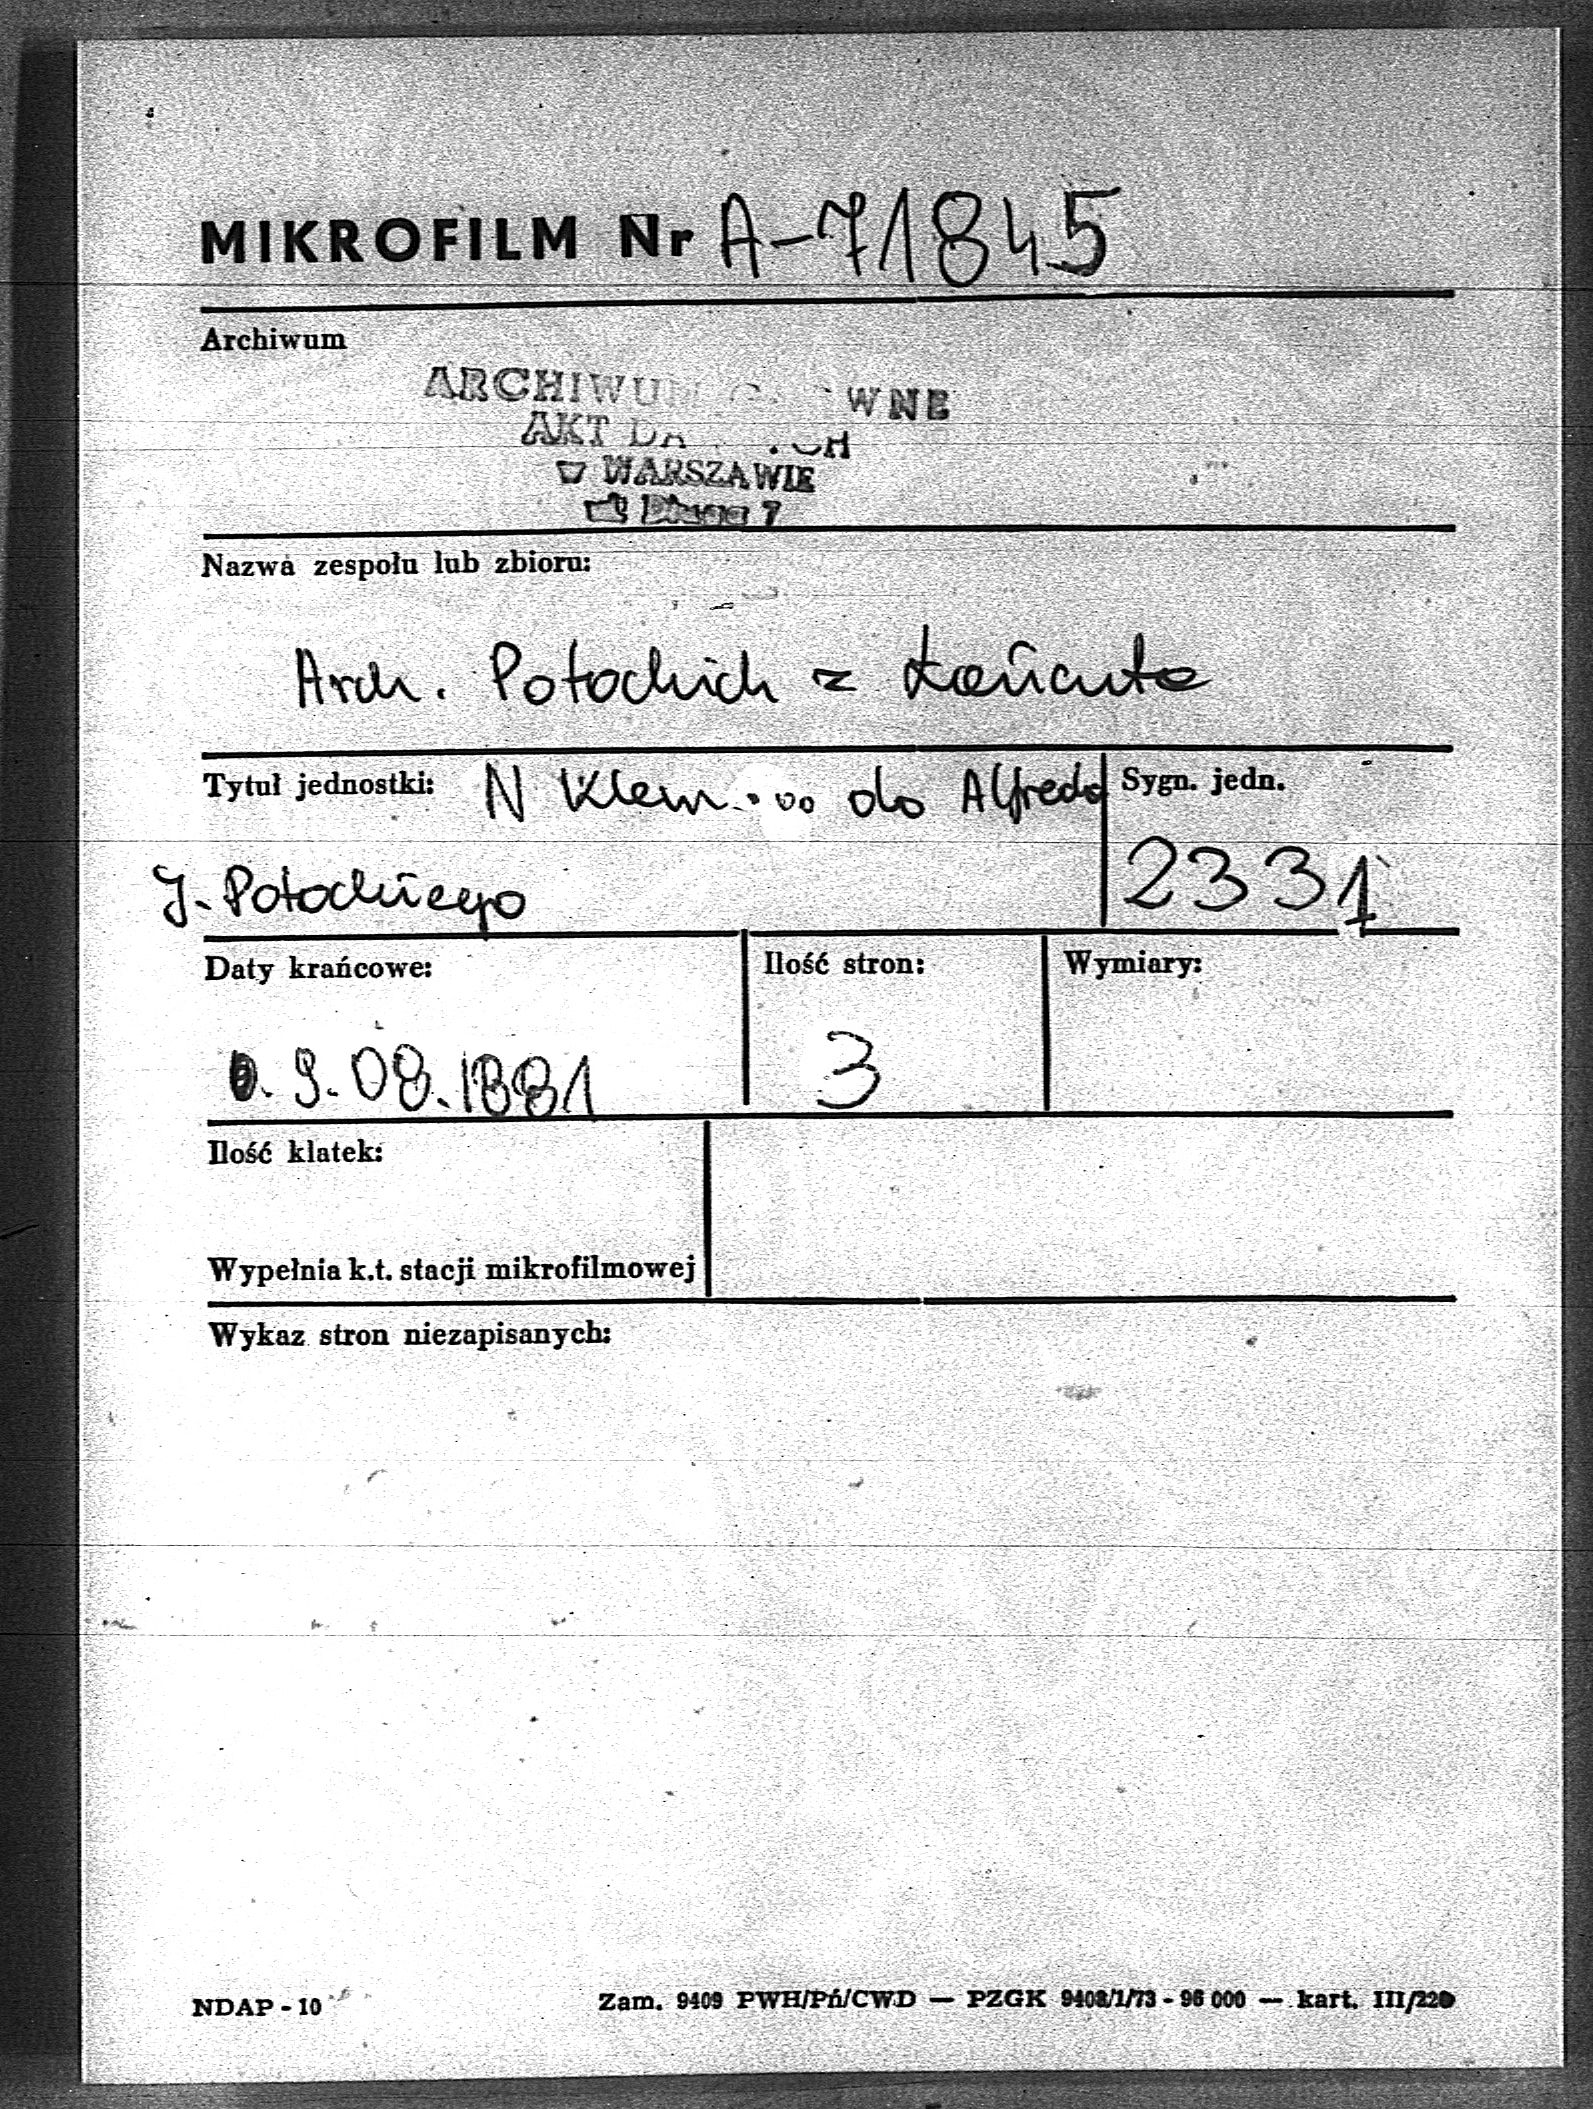 MIKROFILM Nr A-71845
Archiwum
WNE
AKT
WARSZAWIE
7
Nazwa zespołu lub zbioru:
Arch. Potockich z Łańcuta
Tytuł jednostki: N Klem... do Alfreda Sygn. jedn.
J. Potockiego 2331
Daty krańcowe: Ilość stron: Wymiary:
9.08.1881 3
Ilość klatek:
Wypełnia k.t. stacji mikrofilmowej
Wykaz stron niezapisanych:
NDAP - 10 Zam. 9409 PWH/Pń/CWD — PZGK 9408/1/73 - 96 000 — kart. III/220